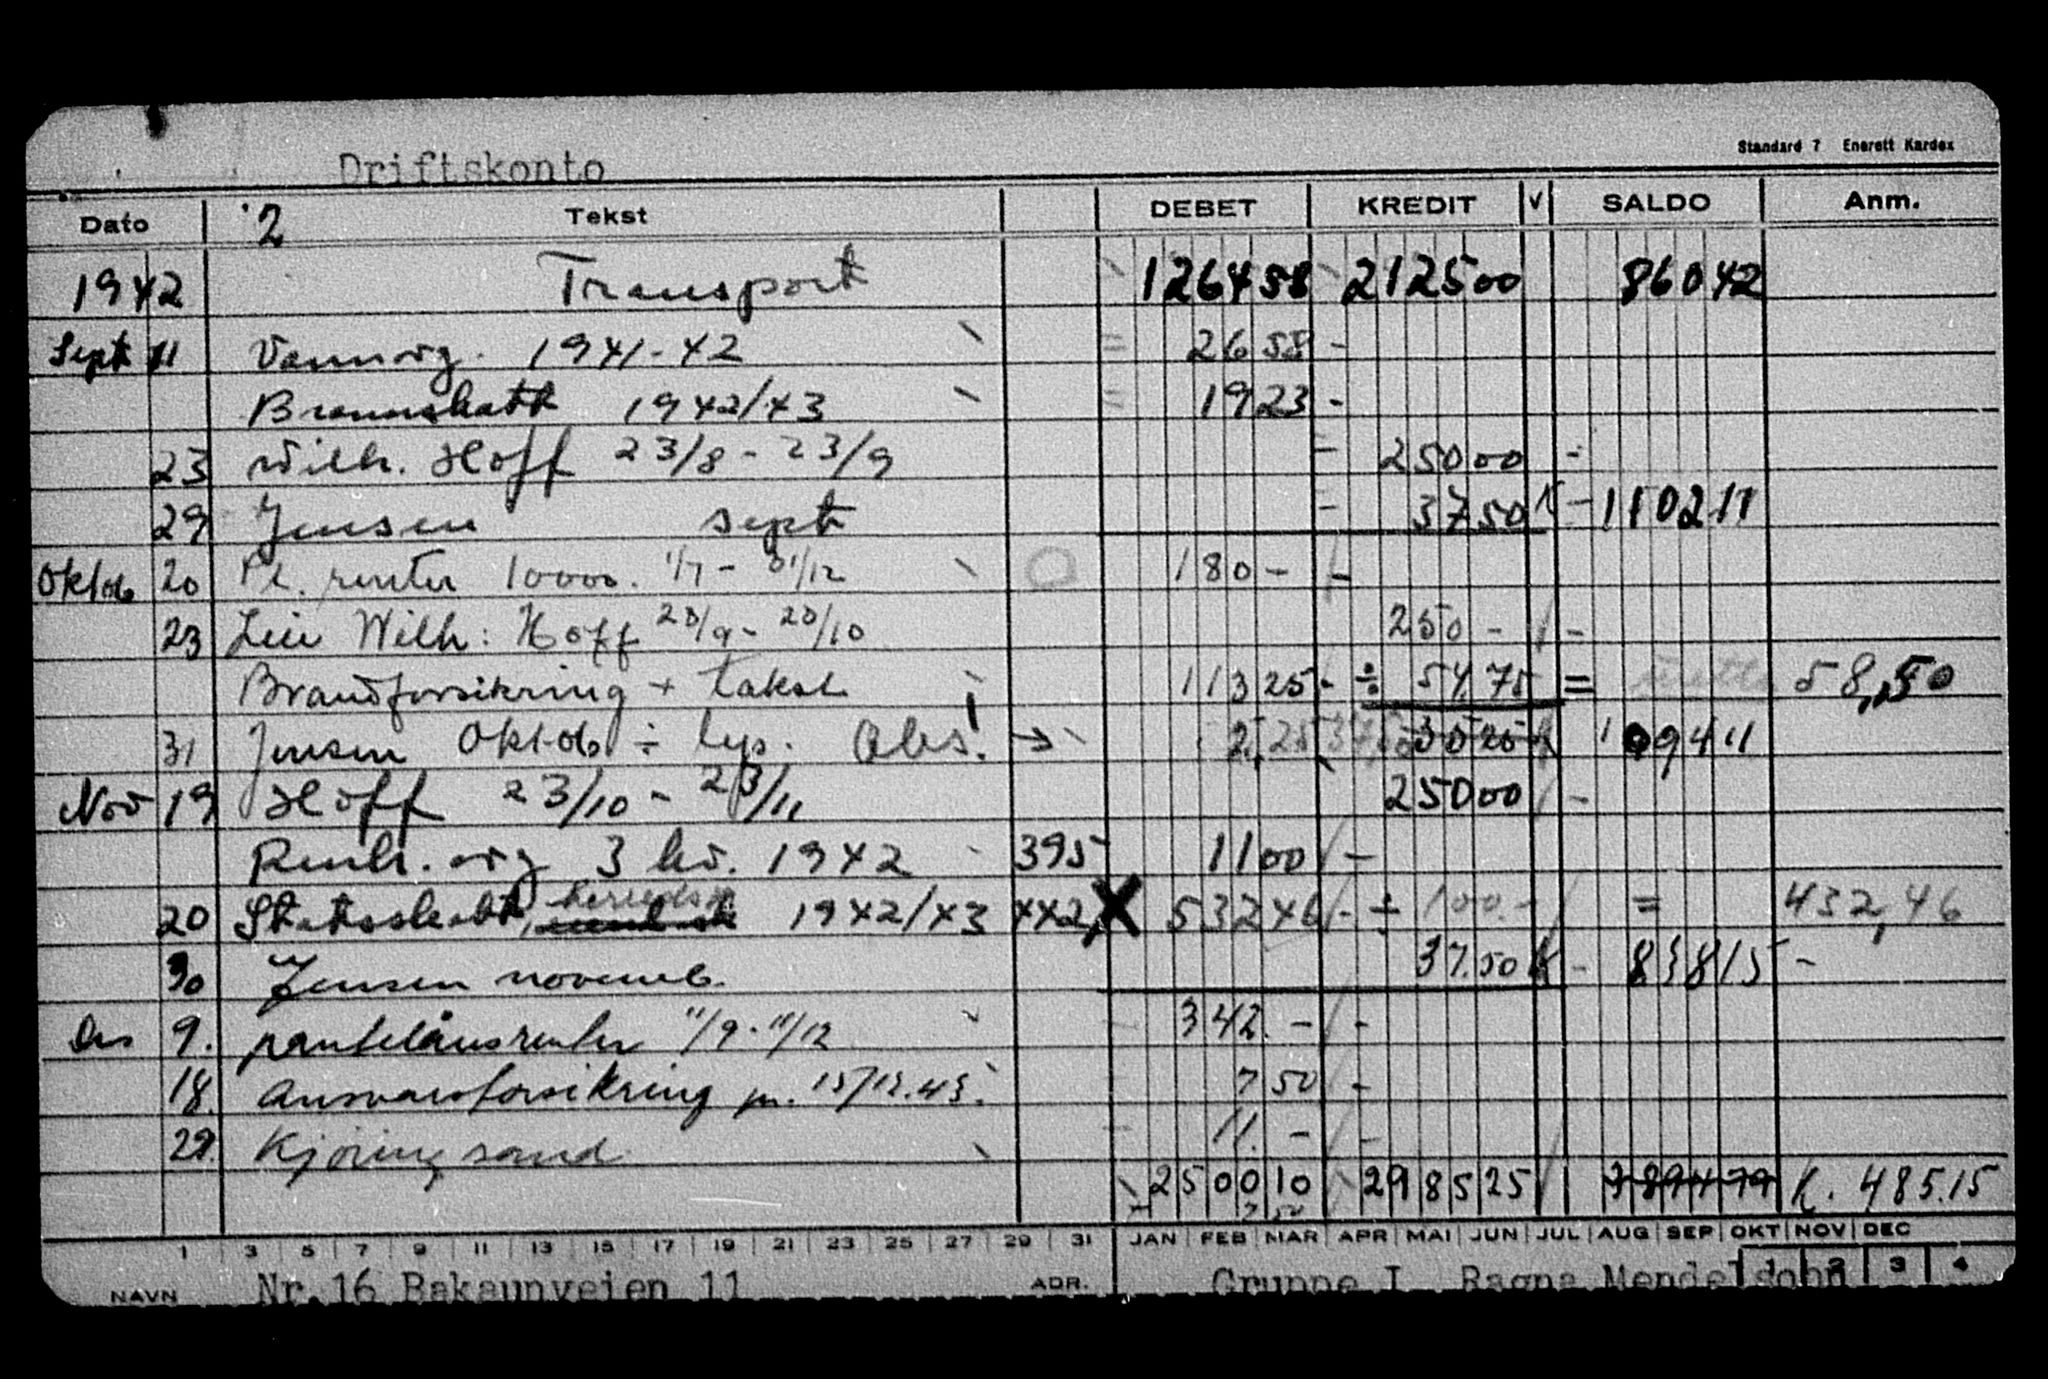 Standard 7 Enerett Kardex
Driftskonto
Dato 2 Tekst DEBET KREDIT √ SALDO Anm.
1942 Transport 1264 58 2125 00 860 42
Sept 11 Vannavg. 1941-42 26 58 -
Brannskatt 1942/43 19 23 -
23 Wilh. Hoff 23/8 - 23/9 250 00 -
29 Jensen sept 37 50 K - 1102 11
Oktob 20 Pl. renter 10000. 1/7 - 31/12 180 - -
23 Leie Wilh: Hoff 23/9 - 23/10 250 - -
Brandforsikring + takst 113 25 - ÷ 54.75 = netto 58,50
31 Jensen Oktob ÷ lys. Obs! → 2,25 37,50 35 25 K 1094 11
Nov 19 Hoff 23/10 - 23/11 250 00 -
Renh. avg 3 kv. 1942 395 11 00 -
20 Statsskatt, herredssk 1942/43 442, X 532 46 - ÷ 100.- = 432,46
30 Jensen novemb. 37.50 K - 838 15 -
Des 9. pantelånsrenter 11/9 - 11/12 342. - -
18. Ansvarsforsikring pr. 15/12.43. 7 50 -
29. Kjöring sand 11. - -
2500 10 2985 25 3894 79 K. 485.15
1 3 5 7 9 11 13 15 17 19 21 23 25 27 29 31 JAN FEB MAR APR MAI JUN JUL AUG SEP OKT NOV DEC
NAVN Nr.16 Bakaunveien 11 ADR. Gruppe I Ragna Mendelsohn 1 2 3 4